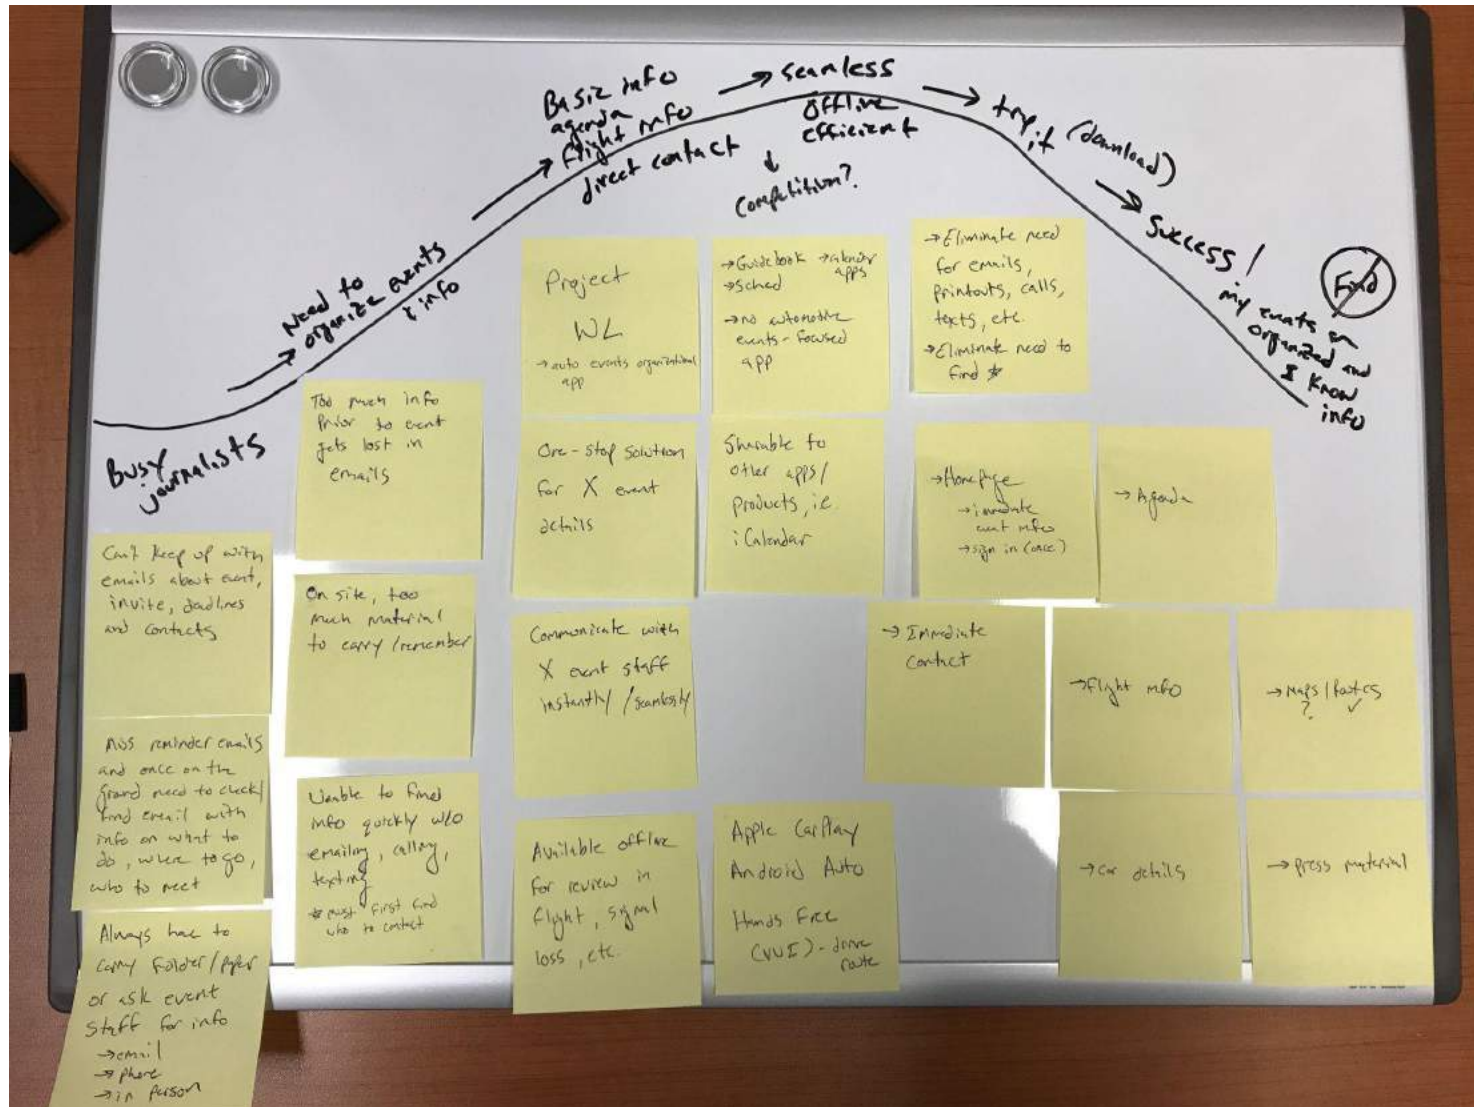 Busy
journalists
→ Need to
organize events
& info
→ Basic info
agenda
flight info
direct contact
→ seamless
offline
efficient
↓
Competition?
→ try it (download)
→ Success!
my events are
organized and
I know
info
Find
Can't keep up with
emails about event,
invite, deadlines
and contacts
Miss reminder emails
and once on the
ground need to check/
find email with
info on what to
do, where to go,
who to meet
Always have to
carry folder/paper
or ask event
staff for info
→ email
→ phone
→ in person
Too much info
prior to event
gets lost in
emails
On site, too
much material
to carry/remember
Unable to find
info quickly w/o
emailing, calling,
texting
* must first find
who to contact
Project
WL
→ auto events organizational
app
One-stop solution
for X event
details
Communicate with
X event staff
instantly/seamlessly
Available offline
for review in
flight, signal
loss, etc.
→ Guidebook → calendar
apps
→ Sched
→ no automotive
events-focused
app
Sharable to
other apps/
products, i.e.
iCalendar
Apple CarPlay
Android Auto
Hands Free
(VUI) - drive
route
→ Eliminate need
for emails,
printouts, calls,
texts, etc.
→ Eliminate need to
find *
→ Homepage
→ immediate
event info
→ sign in (once)
→ Agenda
→ Immediate
Contact
→ flight info
→ Maps/Routes
? ✓
→ car details
→ press material